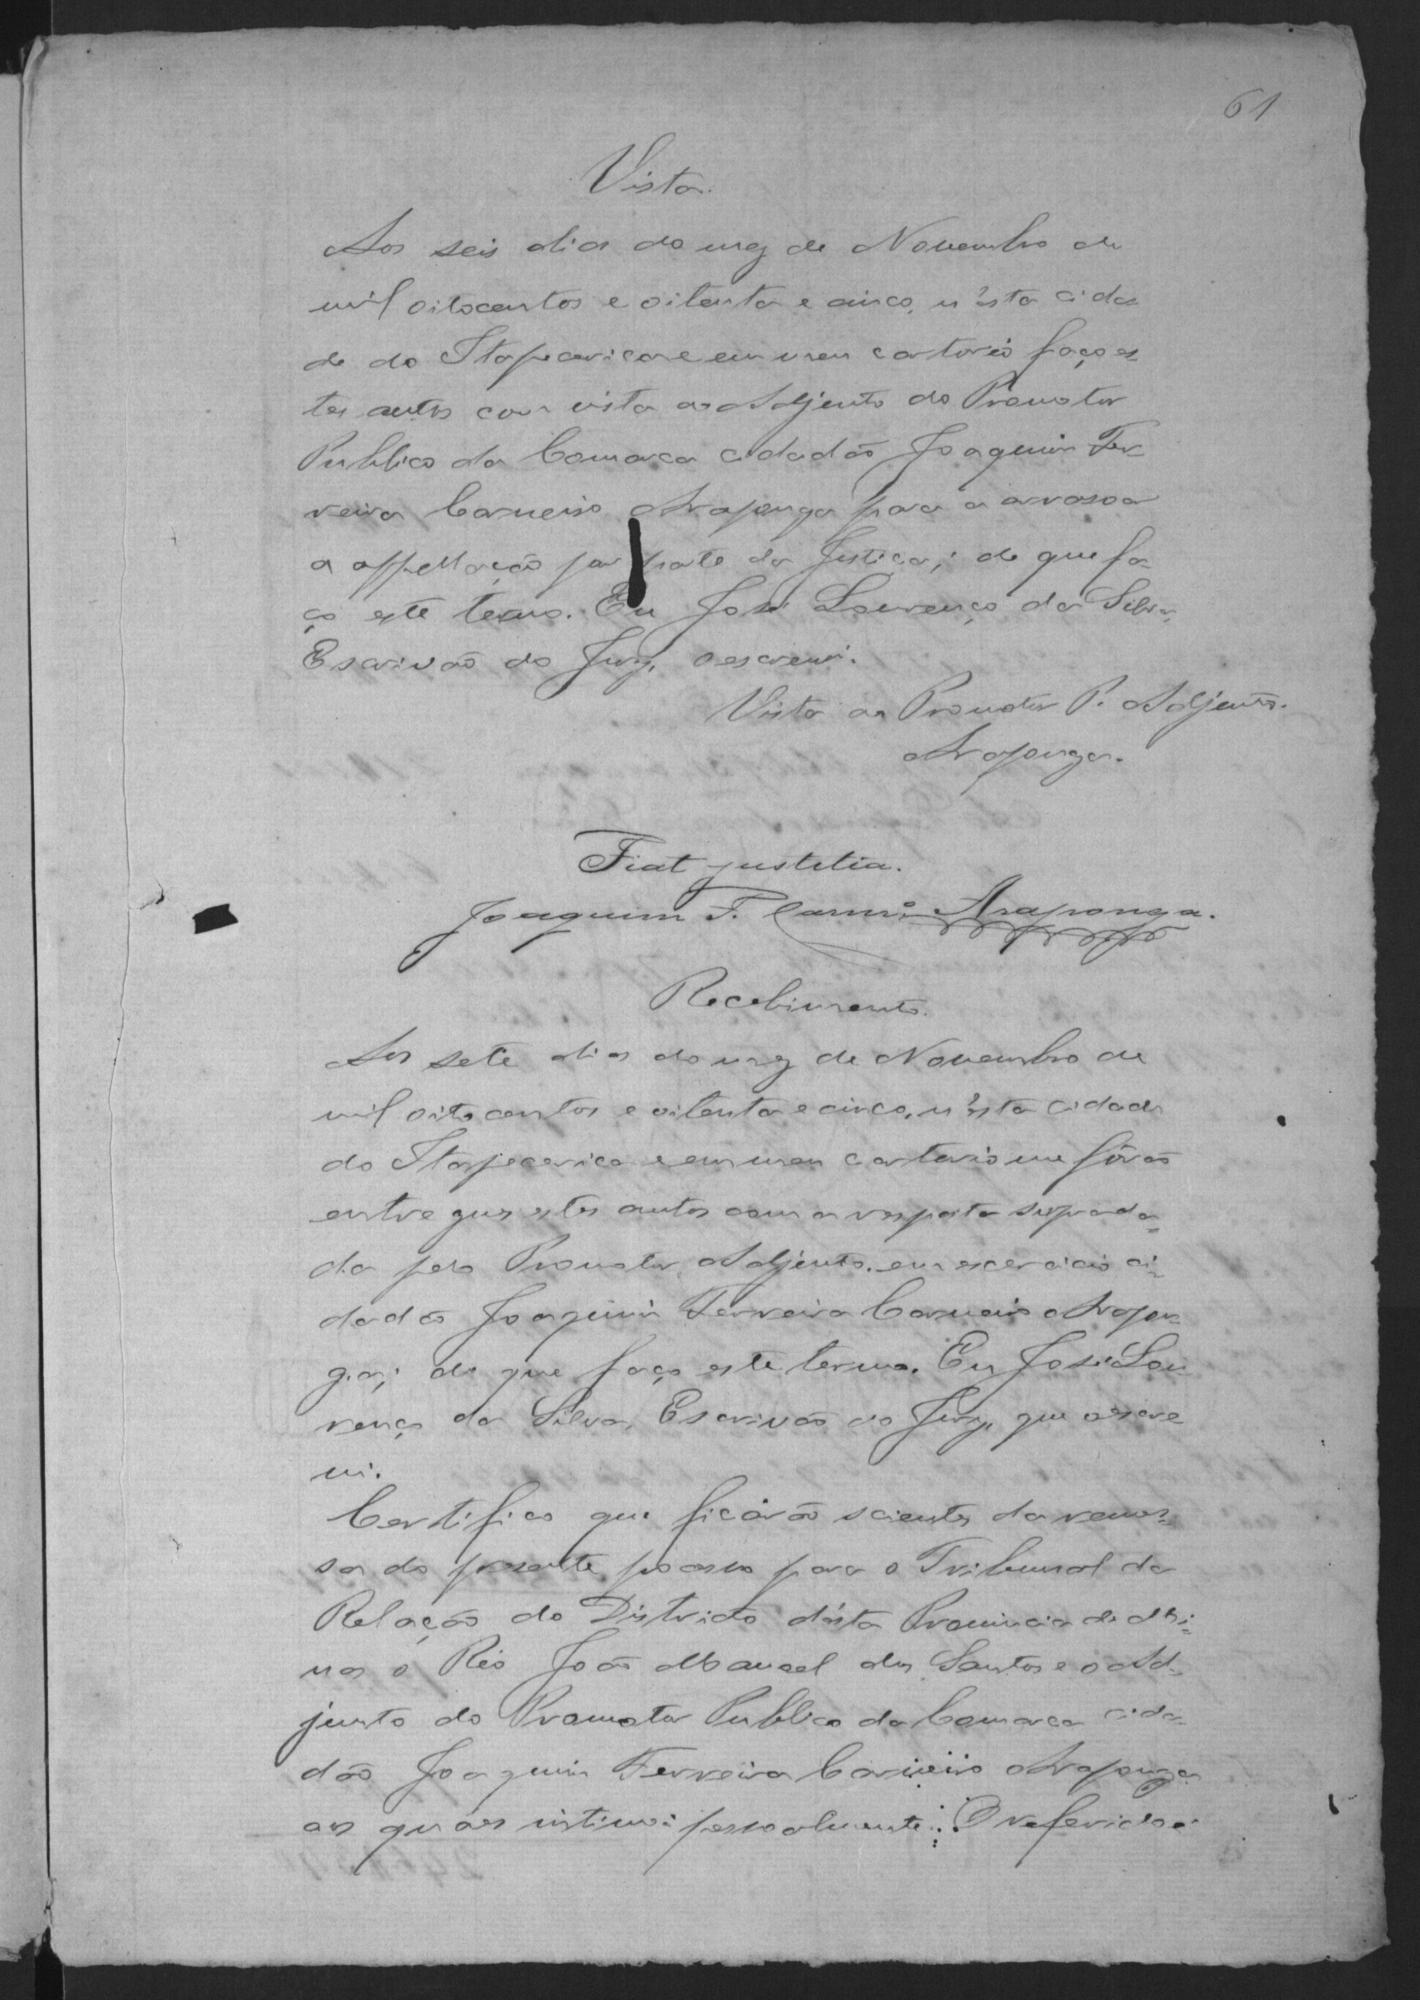 61
Vista.
Aos seis dias do mez de Novembro de
mil oitocentos e oitenta e cinco, n'ésta cida-
de do Itapecerica e em meu cartorio faço es-
tes autos com vista ao Adjunto do Promotor
Publico da Comarca cidadão Joaquim Fer-
reira Carneiro Araponga para a arrasoar
a appellação por parte da Justiça; de que fa-
ço este termo. Eu José Lourenço da Silva,
Escrivão do Jury, o escrevi.
Vista ao Promotor P. Adjunto.
Araponga.
Fiat justitia.
Joaquim F. Carnrº Araponga.
Recebimento.
Aos sete dias do mez de Novembro de
mil oito centos e oitenta e cinco, n'ésta cidade
do Itapecerica e em meu cartorio me fôrão
entregues estes autos com a resposta supra da-
da pelo Promotor Adjunto, em exercicio ci-
dadão Joaquim Ferreira Carneiro Arapon-
ga; do que faço este termo. Eu José Lou-
renço da Silva, Escrivão do Jury, que o escre
vi.
Certifico que ficárão scientes da remes-
sa do presente processo para o Tribunal da
Relação do Districto désta Provincia de Mi-
nas o Réo João Manoel dos Santos e o Ad-
junto do Promotor Publico da Comarca cida-
dão Joaquim Ferreira Carneiro Araponga
aos quaes intimei pessoalmente: O referido é